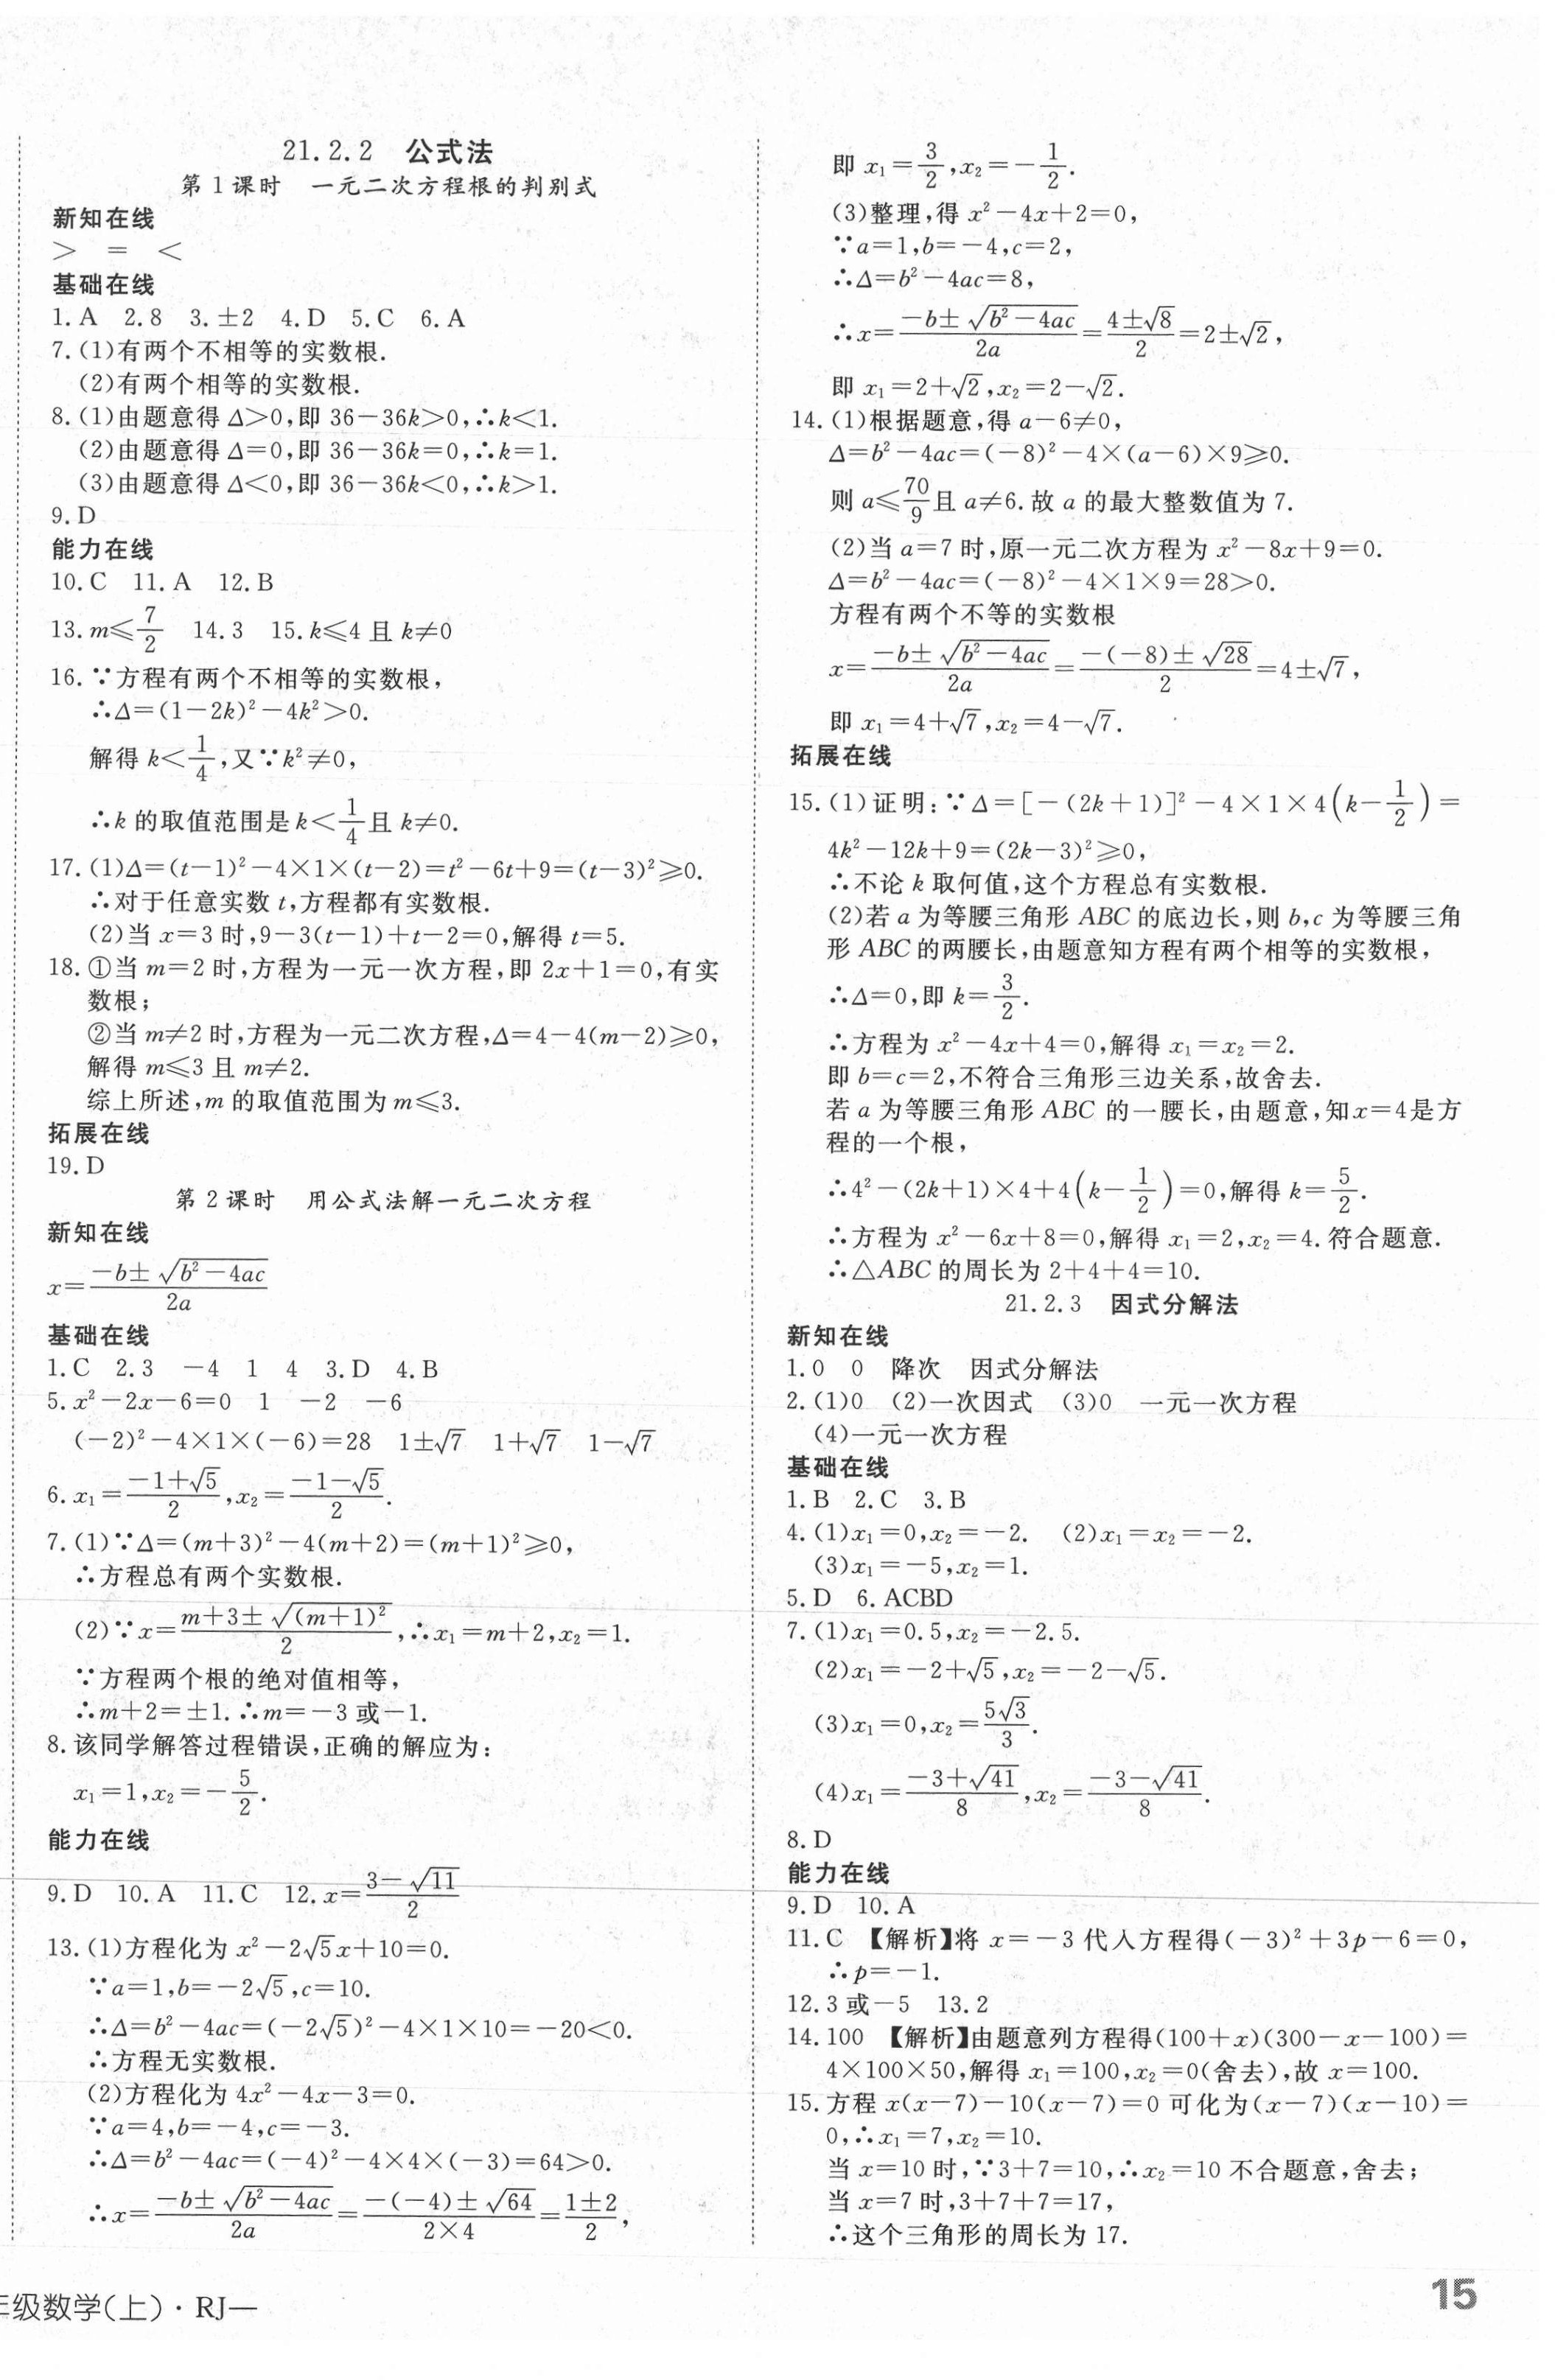 21.2.2 公式法
第1课时 一元二次方程根的判别式
新知在线
> = <
基础在线
1.A 2.8 3.±2 4.D 5.C 6.A
7.(1)有两个不相等的实数根.
(2)有两个相等的实数根.
8.(1)由题意得Δ>0,即36-36k>0,∴k<1.
(2)由题意得Δ=0,即36-36k=0,∴k=1.
(3)由题意得Δ<0,即36-36k<0,∴k>1.
9.D
能力在线
10.C 11.A 12.B
13.m≤7/2 14.3 15.k≤4且k≠0
16.∵方程有两个不相等的实数根,
∴Δ=(1-2k)²-4k²>0.
解得k<1/4,又∵k²≠0,
∴k的取值范围是k<1/4且k≠0.
17.(1)Δ=(t-1)²-4×1×(t-2)=t²-6t+9=(t-3)²≥0.
∴对于任意实数t,方程都有实数根.
(2)当x=3时,9-3(t-1)+t-2=0,解得t=5.
18.①当m=2时,方程为一元一次方程,即2x+1=0,有实
数根;
②当m≠2时,方程为一元二次方程,Δ=4-4(m-2)≥0,
解得m≤3且m≠2.
综上所述,m的取值范围为m≤3.
拓展在线
19.D
第2课时 用公式法解一元二次方程
新知在线
x=(-b±√(b²-4ac))/2a
基础在线
1.C 2.3 -4 1 4 3.D 4.B
5.x²-2x-6=0 1 -2 -6
(-2)²-4×1×(-6)=28 1±√7 1+√7 1-√7
6.x₁=(-1+√5)/2,x₂=(-1-√5)/2.
7.(1)∵Δ=(m+3)²-4(m+2)=(m+1)²≥0,
∴方程总有两个实数根.
(2)∵x=(m+3±√((m+1)²))/2,∴x₁=m+2,x₂=1.
∵方程两个根的绝对值相等,
∴m+2=±1.∴m=-3或-1.
8.该同学解答过程错误,正确的解应为:
x₁=1,x₂=-5/2.
能力在线
9.D 10.A 11.C 12.x=(3-√11)/2
13.(1)方程化为x²-2√5x+10=0.
∵a=1,b=-2√5,c=10.
∴Δ=b²-4ac=(-2√5)²-4×1×10=-20<0.
∴方程无实数根.
(2)方程化为4x²-4x-3=0.
∵a=4,b=-4,c=-3.
∴Δ=b²-4ac=(-4)²-4×4×(-3)=64>0.
∴x=(-b±√(b²-4ac))/2a=(-(-4)±√64)/(2×4)=(1±2)/2,
即x₁=3/2,x₂=-1/2.
(3)整理,得x²-4x+2=0,
∵a=1,b=-4,c=2,
∴Δ=b²-4ac=8,
∴x=(-b±√(b²-4ac))/2a=(4±√8)/2=2±√2,
即x₁=2+√2,x₂=2-√2.
14.(1)根据题意,得a-6≠0,
Δ=b²-4ac=(-8)²-4×(a-6)×9≥0.
则a≤70/9且a≠6.故a的最大整数值为7.
(2)当a=7时,原一元二次方程为x²-8x+9=0.
Δ=b²-4ac=(-8)²-4×1×9=28>0.
方程有两个不等的实数根
x=(-b±√(b²-4ac))/2a=(-(-8)±√28)/2=4±√7,
即x₁=4+√7,x₂=4-√7.
拓展在线
15.(1)证明:∵Δ=[-(2k+1)]²-4×1×4(k-1/2)=
4k²-12k+9=(2k-3)²≥0,
∴不论k取何值,这个方程总有实数根.
(2)若a为等腰三角形ABC的底边长,则b,c为等腰三角
形ABC的两腰长,由题意知方程有两个相等的实数根,
∴Δ=0,即k=3/2.
∴方程为x²-4x+4=0,解得x₁=x₂=2.
即b=c=2,不符合三角形三边关系,故舍去.
若a为等腰三角形ABC的一腰长,由题意,知x=4是方
程的一个根,
∴4²-(2k+1)×4+4(k-1/2)=0,解得k=5/2.
∴方程为x²-6x+8=0,解得x₁=2,x₂=4.符合题意.
∴△ABC的周长为2+4+4=10.
21.2.3 因式分解法
新知在线
1.0 0 降次 因式分解法
2.(1)0 (2)一次因式 (3)0 一元一次方程
(4)一元一次方程
基础在线
1.B 2.C 3.B
4.(1)x₁=0,x₂=-2. (2)x₁=x₂=-2.
(3)x₁=-5,x₂=1.
5.D 6.ACBD
7.(1)x₁=0.5,x₂=-2.5.
(2)x₁=-2+√5,x₂=-2-√5.
(3)x₁=0,x₂=5√3/3.
(4)x₁=(-3+√41)/8,x₂=(-3-√41)/8.
8.D
能力在线
9.D 10.A
11.C 【解析】将x=-3代人方程得(-3)²+3p-6=0,
∴p=-1.
12.3或-5 13.2
14.100 【解析】由题意列方程得(100+x)(300-x-100)=
4×100×50,解得x₁=100,x₂=0(舍去),故x=100.
15.方程x(x-7)-10(x-7)=0可化为(x-7)(x-10)=
0,∴x₁=7,x₂=10.
当x=10时,∵3+7=10,∴x₂=10不合题意,舍去;
当x=7时,3+7+7=17,
∴这个三角形的周长为17.
级数学(上)·RJ—
15